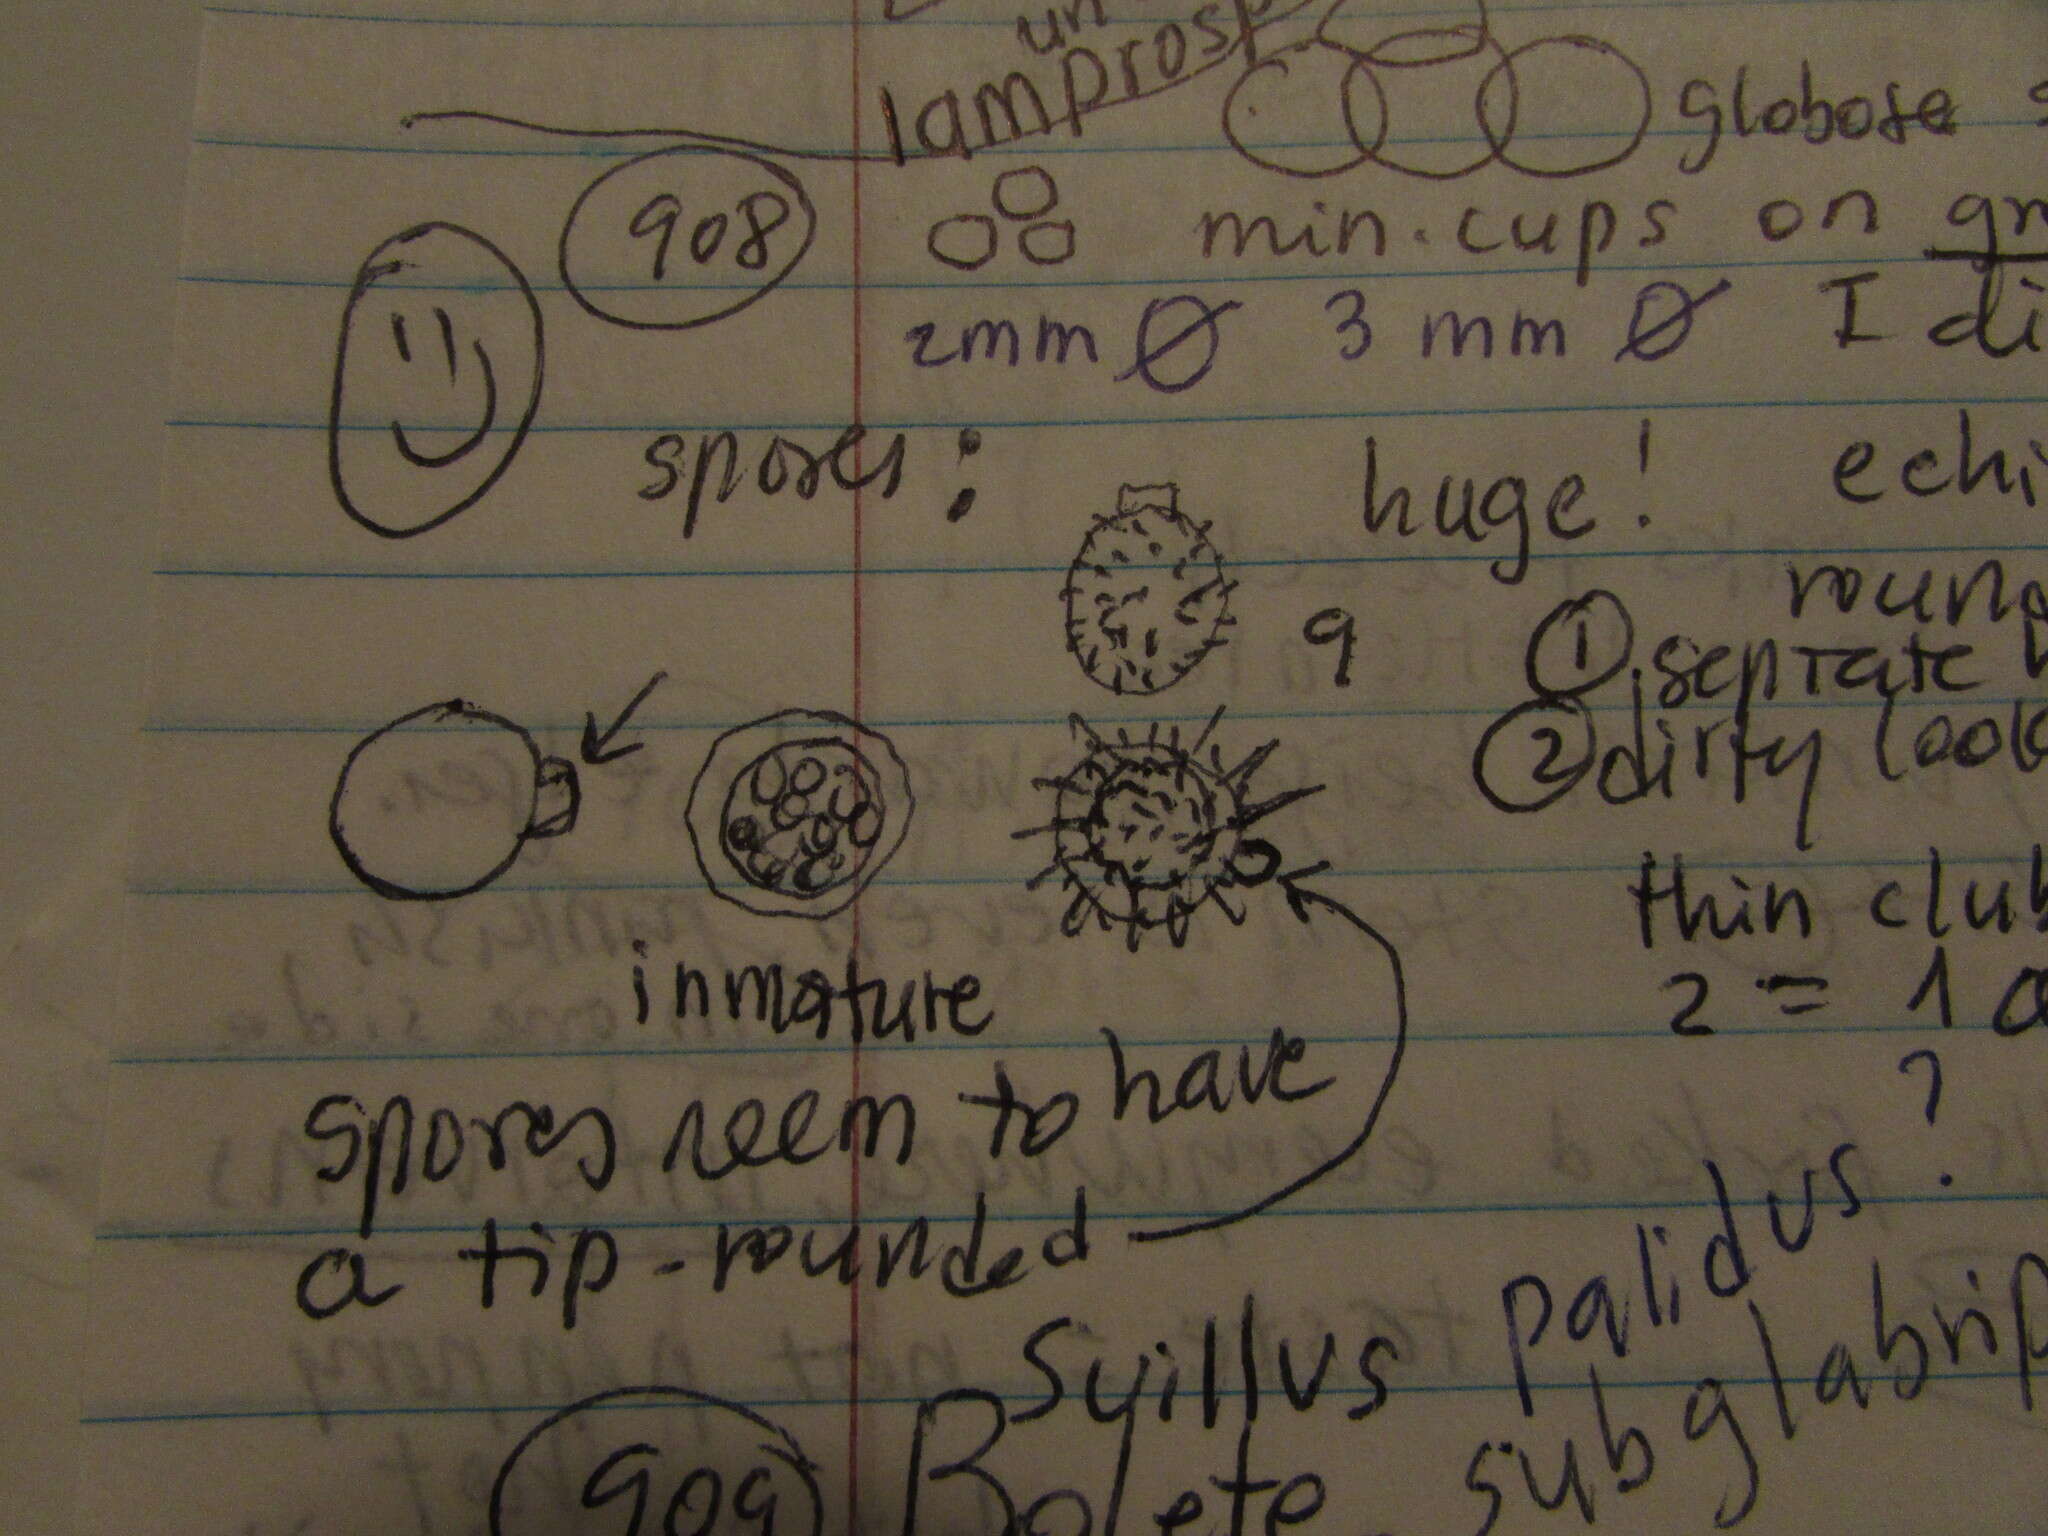 un
lamprosp
globose s
908
min. cups on gr
2mm Ø 3 mm Ø I di
spores: huge! echi
roun
9
① seprate
② dirty look
thin club
2 = 1
?
inmature
spores seem to have
a tip-rounded
Suillus palidus?
909 Bolete subglabrip